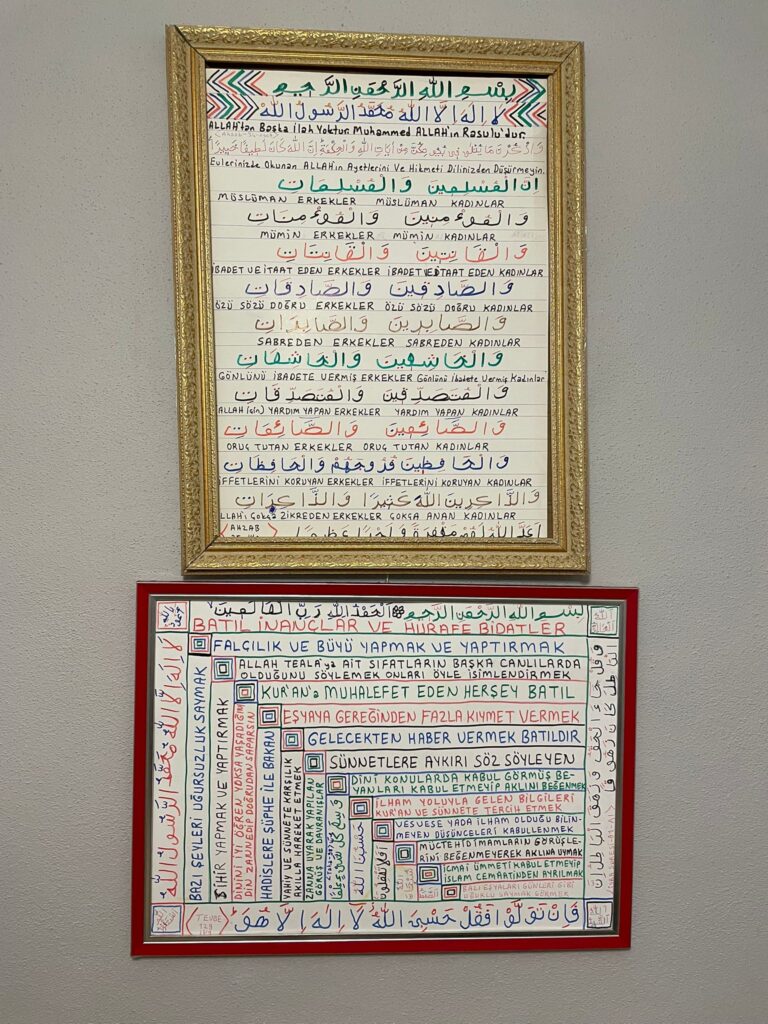 بِسْمِ اللّٰهِ الرَّحْمٰنِ الرَّحِيمِ
لَا اِلٰهَ اِلَّا اللّٰهُ مُحَمَّدٌ الرَّسُولُ اللّٰهْ
ALLAH'tan Başka İlah Yoktur. Muhammed ALLAH'ın Rasulu'dur.
وَاذْكُرْنَ مَا يُتْلٰى فِى بُيُوتِكُنَّ مِنْ اٰيَاتِ اللّٰهِ وَالْحِكْمَةِ اِنَّ اللّٰهَ كَانَ لَطِيفًا خَبِيرًا
Evlerinizde Okunan ALLAH'ın Ayetlerini Ve Hikmeti Dilinizden Düşürmeyin.
اِنَّ الْمُسْلِمِينَ وَالْمُسْلِمَاتِ
MÜSLÜMAN ERKEKLER MÜSLÜMAN KADINLAR
وَالْمُوءْمِنِينَ وَالْمُوءْمِنَاتِ
MÜMİN ERKEKLER MÜMİN KADINLAR
وَالْقَانِتِينَ وَالْقَانِتَاتِ
İBADET VE İTAAT EDEN ERKEKLER İBADET VE İTAAT EDEN KADINLAR
وَالصَّادِقِينَ وَالصَّادِقَاتِ
ÖZÜ SÖZÜ DOĞRU ERKEKLER ÖZÜ SÖZÜ DOĞRU KADINLAR
وَالصَّابِرِينَ وَالصَّابِرَاتِ
SABREDEN ERKEKLER SABREDEN KADINLAR
وَالْخَاشِعِينَ وَالْخَاشِعَاتِ
GÖNLÜNÜ İBADETE VERMİŞ ERKEKLER Gönlünü İbadete Vermiş Kadınlar
وَالْمُتَصَدِّقِينَ وَالْمُتَصَدِّقَاتِ
ALLAH İçin YARDIM YAPAN ERKEKLER YARDIM YAPAN KADINLAR
وَالصَّائِمِينَ وَالصَّائِمَاتِ
ORUÇ TUTAN ERKEKLER ORUÇ TUTAN KADINLAR
وَالْحَافِظِينَ فُرُوجَهُمْ وَالْحَافِظَاتِ
İFFETLERİNİ KORUYAN ERKEKLER İFFETLERİNİ KORUYAN KADINLAR
وَالذَّاكِرِينَ اللّٰهَ كَثِيرًا وَالذَّاكِرَاتِ
ALLAH'I Çokça ZİKREDEN ERKEKLER ÇOKÇA ANAN KADINLAR
اَعَدَّ اللّٰهُ لَهُمْ مَغْفِرَةً وَاَجْرًا عَظِيمًا
AHZAB
بِسْمِ اللّٰهِ الرَّحْمٰنِ الرَّحِيمِ اَلْحَمْدُ لِلّٰهِ رَبِّ الْعَالَمِينَ
BATIL İNANÇLAR VE HURAFE BİDATLER
FALÇILIK VE BÜYÜ YAPMAK VE YAPTIRMAK
ALLAH TEALA'ya AİT SIFATLARIN BAŞKA CANLILARDA
OLDUĞUNU SÖYLEMEK ONLARI ÖYLE İSİMLENDİRMEK
KUR'AN'a MUHALEFET EDEN HERŞEY BATIL
EŞYAYA GEREĞİNDEN FAZLA KIYMET VERMEK
GELECEKTEN HABER VERMEK BATILDIR
SÜNNETLERE AYKIRI SÖZ SÖYLEYEN
DİNİ KONULARDA KABUL GÖRMÜŞ BE-
YANLARI KABUL ETMEYİP AKLINI BEĞENMEK
İLHAM YOLUYLA GELEN BİLGİLERİ
KUR'AN VE SÜNNETE TERCİH ETMEK
VESVESE YADA İLHAM OLDUĞU BİLİN-
MEYEN DÜŞÜNCELERİ KABULLENMEK
MÜÇTEHİD İMAMLARIN GÖRÜŞLE-
RİNİ BEĞENMEYEREK AKLINA UYMAK
İCMAİ ÜMMETİ KABUL ETMEYİP
İSLAM CEMAATİNDEN AYRILMAK
BAZI EŞYALARI GÜNLERİ GİBİ
UĞURLU SAYMAK GÖRMEK
لَا اِلٰهَ اِلَّا اللّٰهُ مُحَمَّدٌ الرَّسُولُ اللّٰهْ
BAZI ŞEYLERİ UĞURSUZLUK SAYMAK
SİHİR YAPMAK VE YAPTIRMAK
DİNİNİ İYİ ÖĞREN YOKSA YAŞADIĞINI
DİN ZANNEDİP DOĞRUDAN SAPARSIN
HADİSLERE ŞÜPHE İLE BAKAN
VAHİY VE SÜNNETE KARŞILIK
AKILLA HAREKET ETMEK
ZANNA UYARAK YAPILAN
GÖRÜŞ VE DAVRANIŞLAR
حَسْبُنَا اللّٰهُ
اَفَلَا تَعْقِلُونَ
وَقُلْ جَاءَ الْحَقُّ وَزَهَقَ الْبَاطِلُ اِنَّ
الْبَاطِلَ كَانَ زَهُوقًا
TEVBE
129
فَاِنْ تَوَلَّوْا فَقُلْ حَسْبِىَ اللّٰهُ لَا اِلٰهَ اِلَّا هُوَ